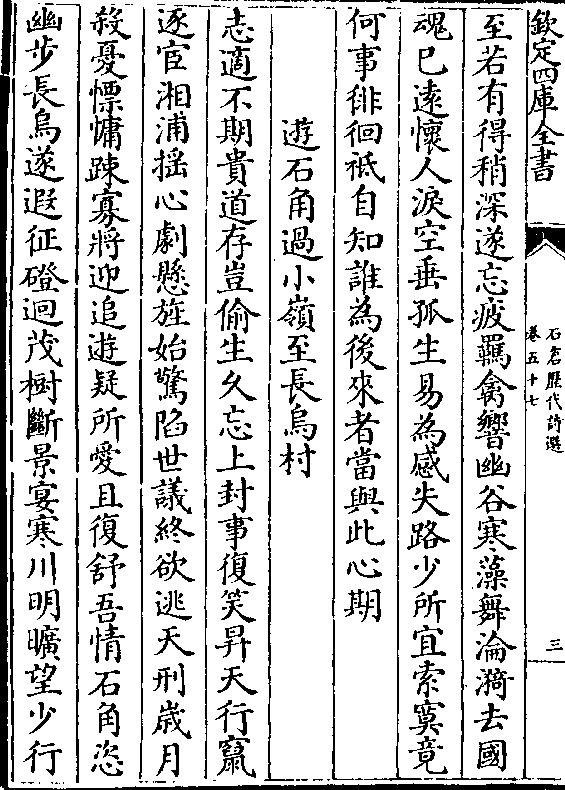 欽定四庫全書
石倉歴代詩選
卷五十七
三
至若有得稍深遂忘疲羈禽響幽谷寒藻舞淪漪去國
魂已遠懷人淚空垂孤生易為感失路少所宜索寞竟
何事徘徊祗自知誰為後來者當與此心期
遊石角過小嶺至長烏村
志適不期貴道存豈偷生久忘上封事復笑昇天行竄
逐宦湘浦揺心劇懸旌始驚陷世議終欲逃天刑歲月
殺憂慄慵踈寡將迎追遊疑所愛且復舒吾情石角恣
幽步長烏遂遐征磴迴茂樹斷景宴寒川明曠望少行